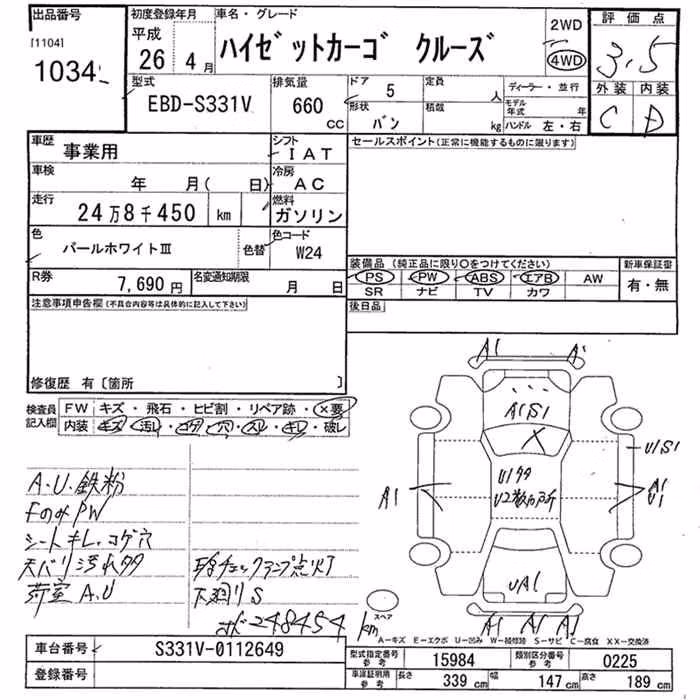 出品番号
[1104]
1034
初度登録年月
平成
26 4月
車名・グレード
ハイゼットカーゴ クルーズ
2WD
4WD
評価点
3.5
外装 内装
C D
型式
EBD-S331V
排気量
660
CC
ドア 5
形状
バン
定員
人
積載
kg
ディーラー・並行
モデル年式 年
ハンドル 左・右
車歴
事業用
シフト
IAT
車検
年 月( 日)
冷房
AC
走行
24万8千450 km
燃料
ガソリン
色
パールホワイトⅢ
色替
色コード
W24
R券
7,690円
名変通知期限
月 日
セールスポイント(正常に機能するものに限ります)
装備品(純正品に限り○をつけてください)
PS PW ABS エアB AW
SR ナビ TV カワ
新車保証書
有・無
後日品
注意事項申告欄(不具合内容等は具体的に記入して下さい)
修復歴 有〔箇所 〕
検査員記入欄
FW キズ・飛石・ヒビ割・リペア跡・×要
内装 キズ・汚レ・コゲ・穴・スレ・キレ・破レ
A.U.鉄粉
FのみPW
シートキレ.コゲ穴
天バリ汚れタタ
荷室A.U
チェックランプ点灯
下廻りS
248454km
A1 A1
A1S1
X
U1タタ
U2数カ所
A1
U1S1
A1
U1
UA1
A1 A1 A1
スペア
A-キズ E-エクボ U-凹み W-補修跡 S-サビ C-腐食 XX-交換済
車台番号 S331V-0112649
登録番号
型式指定番号参考 15984
類別区分番号参考 0225
車庫証明用参考 長さ 339cm 幅 147cm 高さ 189cm